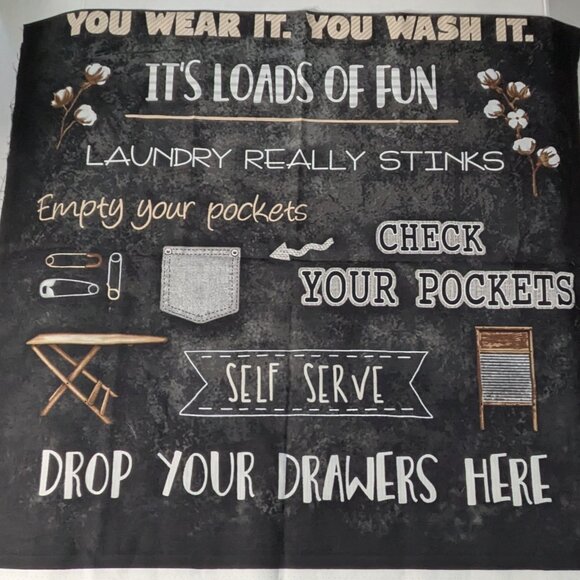 YOU WEAR IT. YOU WASH IT.
IT'S LOADS OF FUN
LAUNDRY REALLY STINKS
Empty your pockets
CHECK
YOUR POCKETS
SELF SERVE
DROP YOUR DRAWERS HERE